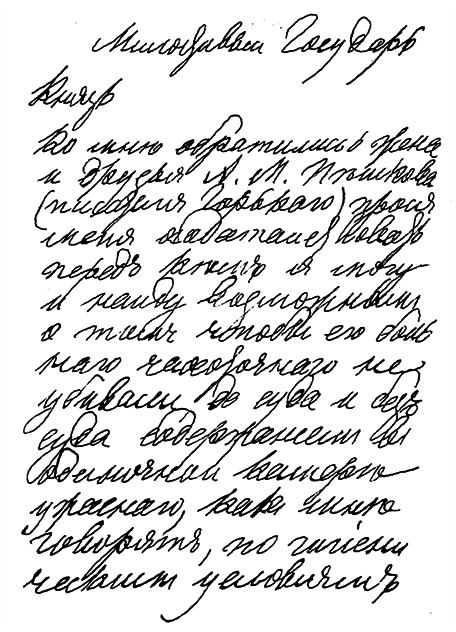 Милостивый Государь
Князь
Ко мнѣ обратились жена
и друзья А. М. Пѣшкова
(писателя Горькаго) прося
меня
передъ кѣмъ я могу
и найду возможнымъ
о томъ чтобы его боль
наго чахоточнаго не
убивали до суда и безъ
суда содержаніемъ въ
одиночной камерѣ
ужаснаго, какъ мнѣ
говорятъ, по гигіени
ческимъ условіямъ